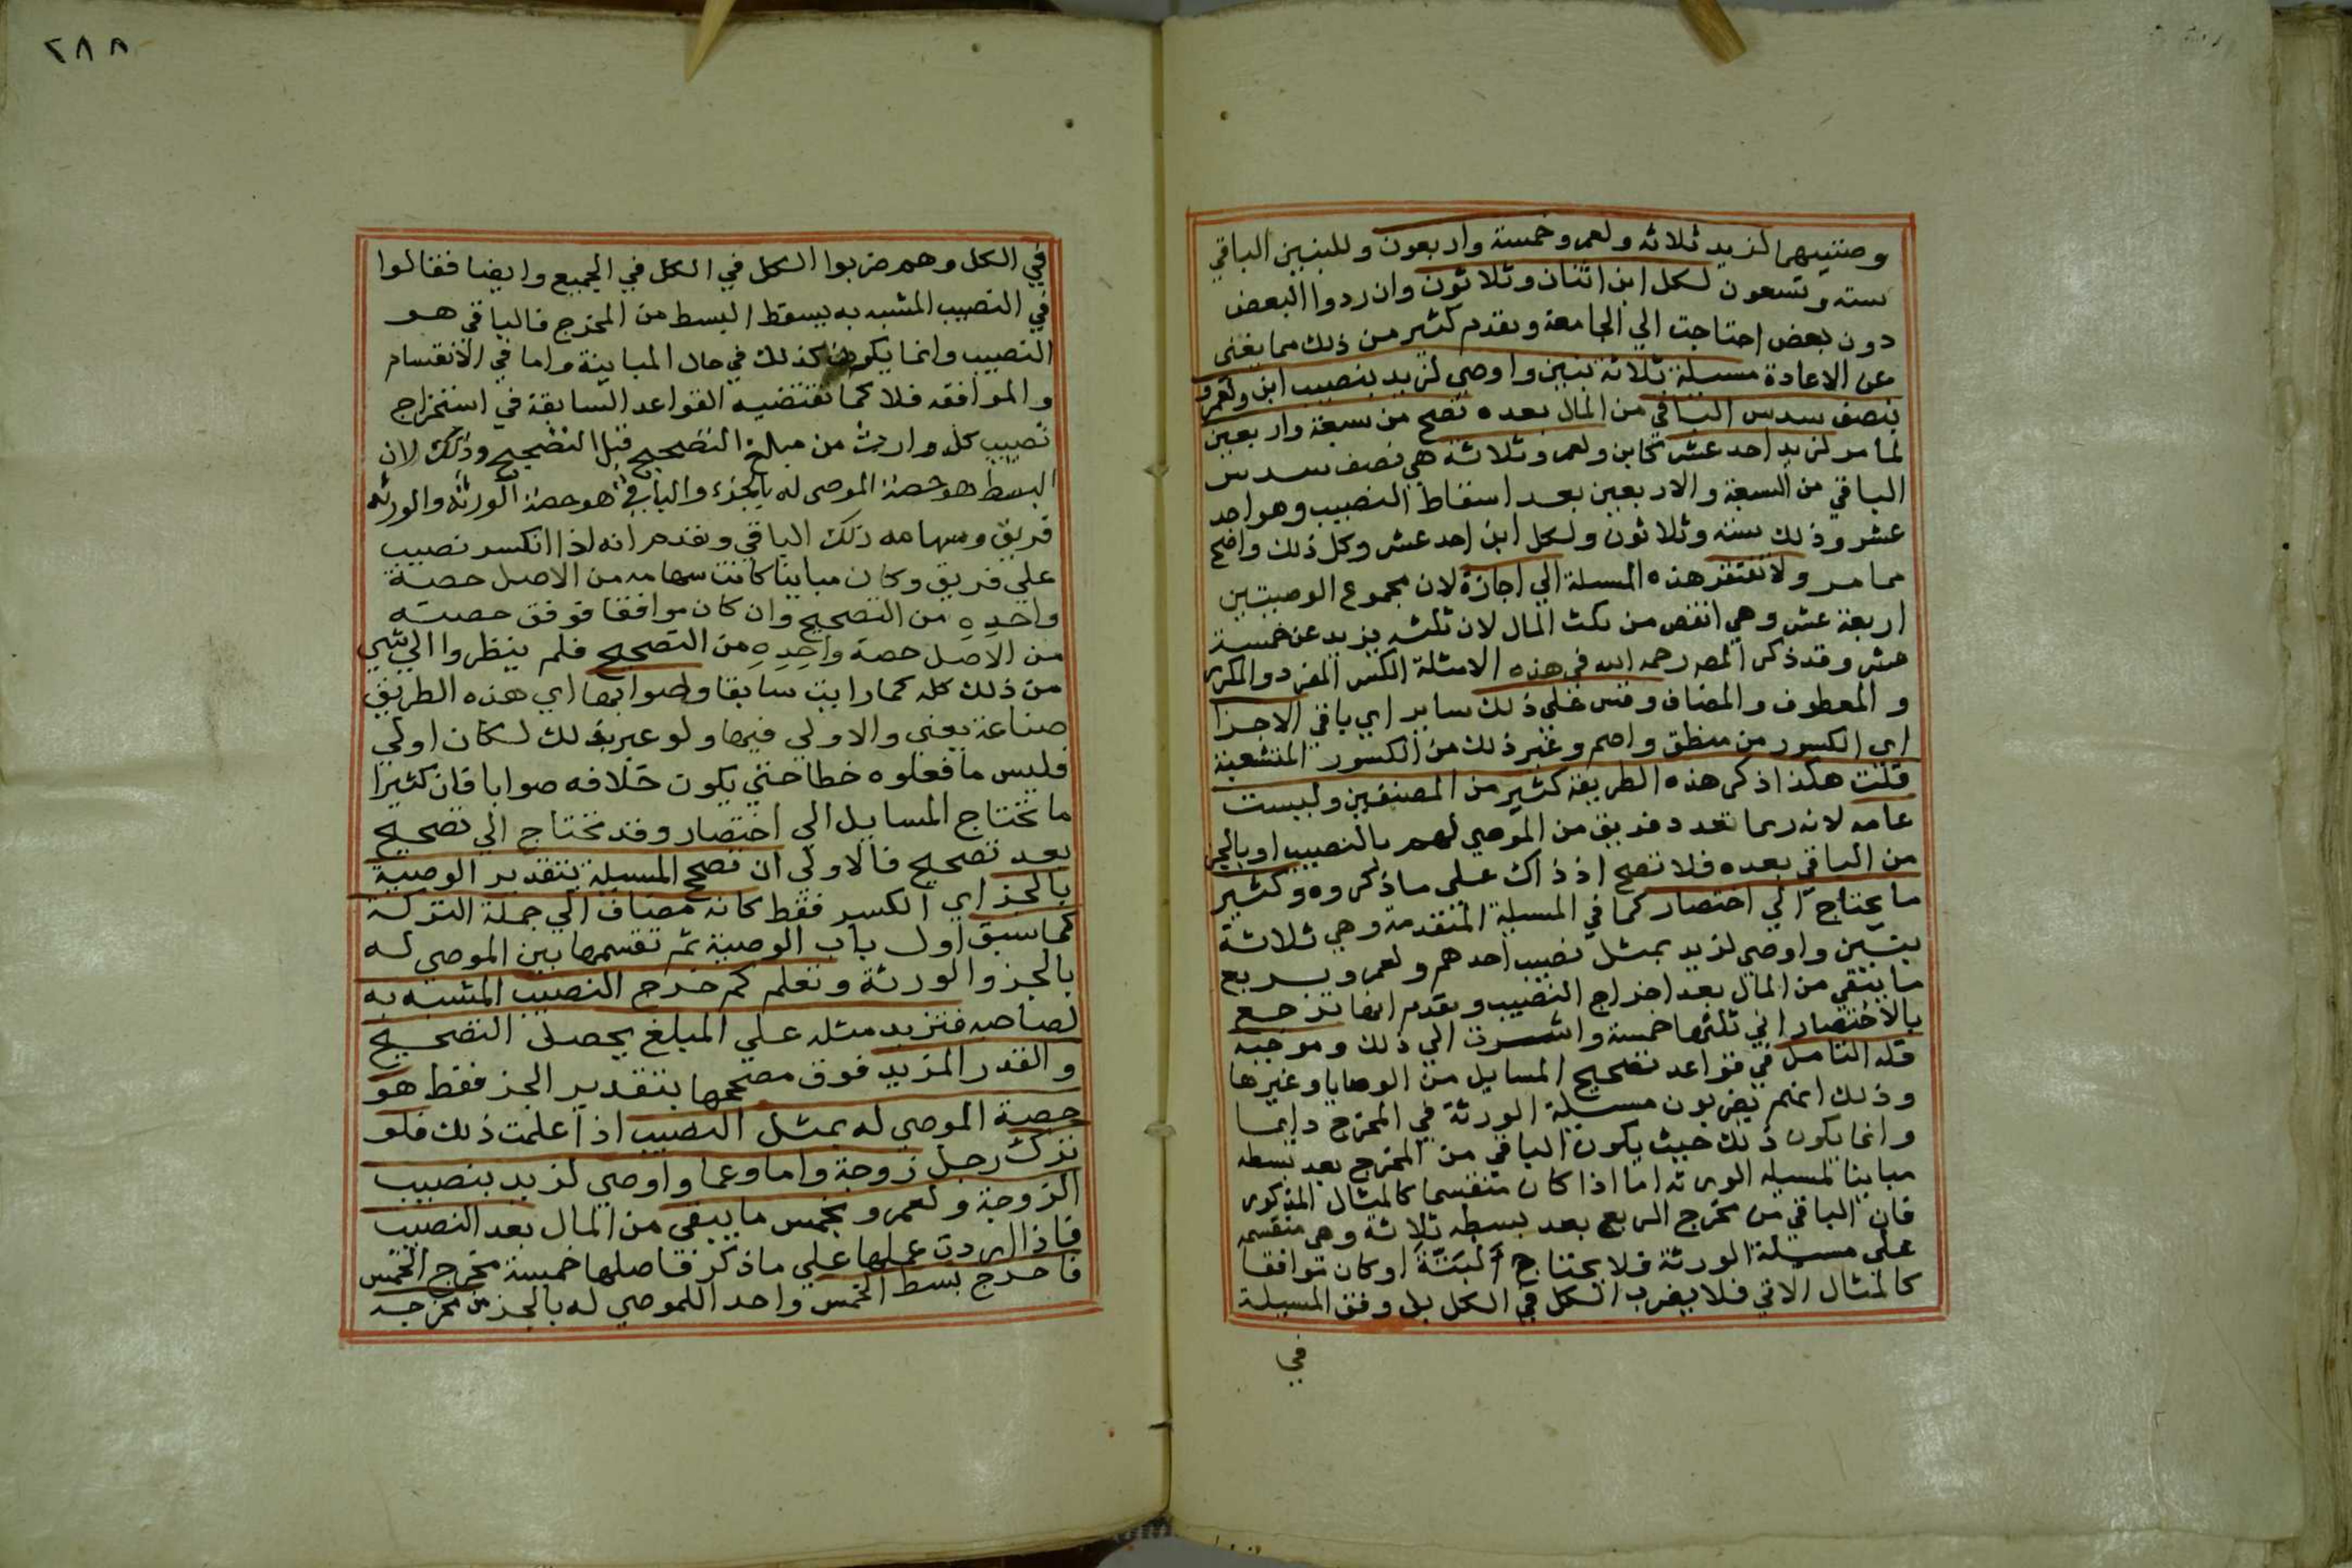 وصيتيهما لزيد ثلاثه ولعمرو خمسة واربعون وللبنين الباقي
سته وتسعون لكل ابن اثنان وثلاثون وان ردوا البعض
دون بعض احتاجت الي الجامعة وتقدم كثير من ذلك مما يغني
عن الاعادة مسيلة ثلاثة بنين واوصي لزيد بنصيب ابن ولعمرو
بنصف سدس الباقي من المال بعده تصح من سبعة واربعين
لما مر لزيد احد عشر كابن ولعمرو ثلاثة هي نصف سدس
الباقي من السبعة والاربعين بعد اسقاط النصيب وهو احد
عشر وذلك ستة وثلاثون ولكل ابن احد عشر وكل ذلك واضح
مما مر ولا تفتقر هذه المسيلة الي اجازة لان مجموع الوصيتين
اربعة عشر وهي انقص من ثلث المال لان ثلثه يزيد عن خمسة
عشر وقد ذكر المص رحمه الله في هذه الامثلة الكسر المفرد والمكرر
والمعطوف والمضاف وقس علي ذلك ساير اي باقي الاجزا
اي الكسور من منطق واصم وغير ذلك من الكسور المتشعبة
قلت هكذا ذكر هذه الطريقة كثير من المصنفين وليست
عامه لانه ربما تعدد فريق من الموصي لهم بالنصيب او بالجز
من الباقي بعده فلا تصح اذ ذاك علي ما ذكروه وكثير
ما يحتاج الي اختصار كما في المسيلة المتقدمة وهي ثلاثة
بنين واوصي لزيد بمثل نصيب احدهم ولعمرو بربع
ما يبقي من المال بعد اخراج النصيب وتقدم انها ترجع
بالاختصار الي ثلثها خمسة واشرت الي ذلك وموجبه
قلة التامل في قواعد تصحيح المسايل من الوصايا وغيرها
وذلك انهم يضربون مسيلة الورثة في المخرج دايما
وانما يكون ذلك حيث يكون الباقي من المخرج بعد بسطه
مباينا لمسيلة الورثه اما اذا كان منقسما كالمثال المذكور
فان الباقي من مخرج الربع بعد بسطه ثلاثة وهي منقسمه
علي مسيلة الورثة فلا يحتاج البتة اوكان توافقا
كالمثال الاتي فلا يضرب الكل في الكل بل وفق المسيلة
في
٢٨٨
في الكل وهم ضربوا الكل في الكل في الجميع وايضا فقالوا
في النصيب المشبه به يسقط البسط من المخرج فالباقي هو
النصيب وانما يكون كذلك في حال المباينة واما في الانقسام
والموافقه فلا كما تقتضيه القواعد السابقة في استخراج
نصيب كل وارث من مبلغ التصحيح قبل التصحيح وذلك لان
البسط هو حصة الموصي له بالجزء والباقي هو حصة الورثة والورثه
فريق وسهامه ذلك الباقي وتقدم انه اذا انكسر نصيب
علي فريق وكان مباينا كانت سهامه من الاصل حصة
واحده من التصحيح وان كان موافقا فوفق حصته
من الاصل حصة واحده من التصحيح فلم ينظروا الي شي
من ذلك كله كما رايت سابقا وصوابها اي هذه الطريق
صناعة يعني والاولي فيها ولو عبر بذلك لكان اولي
فليس ما فعلوه خطا حتي يكون خلافه صوابا فان كثيرا
ما تحتاج المسايل الي اختصار وقد تحتاج الي تصحيح
بعد تصحيح فالاولي ان تصحح المسيلة بتقدير الوصية
بالجز اي الكسر فقط كانه مضاف الي جملة التركة
كما سبق اول باب الوصية ثم تقسمها بين الموصي له
بالجز والورثة وتعلم كم خرج النصيب المشبه به
لصاحبه فتزيد مثله علي المبلغ يحصل التصحيح
والقدر المزيد فوق مصححها بتقدير الجز فقط هو
حصة الموصي له بمثل النصيب اذا علمت ذلك فلو
ترك رجل زوجة واما وعما واوصي لزيد بنصيب
الزوجة ولعمرو بخمس ما يبقي من المال بعد النصيب
فاذا اردت عملها علي ما ذكر فاصلها خمسة مخرج الخمس
فاخرج بسط الخمس واحد اللموصي له بالجز من مخرجه